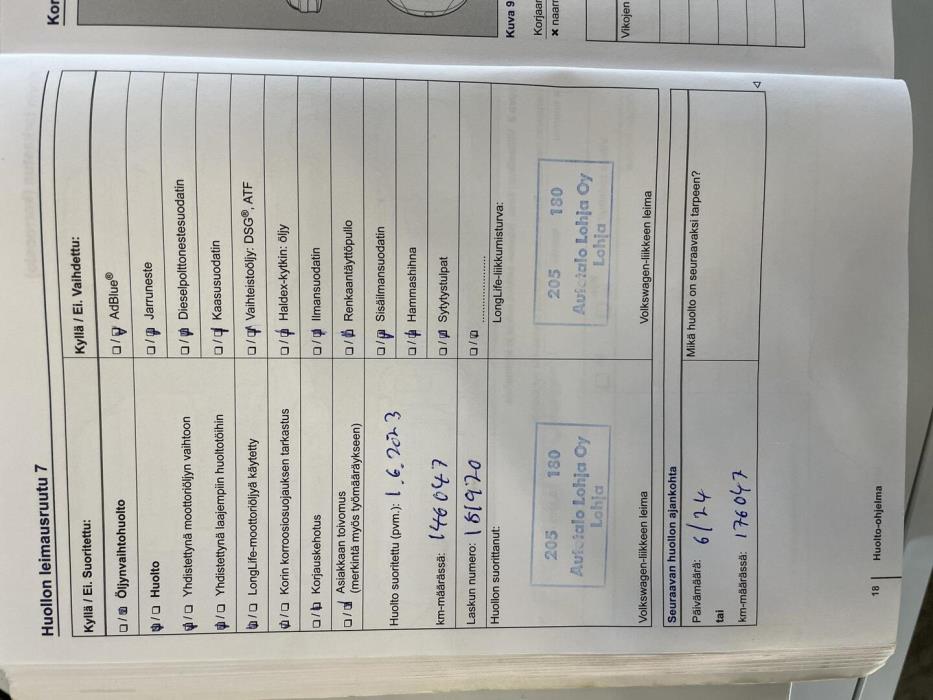 Huollon leimausruutu 7
Kyllä / Ei. Suoritettu:
Öljynvaihtohuolto
Huolto
Yhdistettynä moottoriöljyn vaihtoon
Yhdistettynä laajempiin huoltotöihin
LongLife-moottoriöljyä käytetty
Korin korroosiosuojauksen tarkastus
Korjauskehotus
Asiakkaan toivomus
(merkintä myös työmääräykseen)
Huolto suoritettu (pvm.): 1.6.2023
km-määrässä: 146047
Laskun numero: 151920
Huollon suorittanut:
205 180
Autotalo Lohja Oy
Lohja
Volkswagen-liikkeen leima
Kyllä / Ei. Vaihdettu:
AdBlue®
Jarruneste
Dieselpolttonestesuodatin
Kaasusuodatin
Vaihteistoöljy: DSG®, ATF
Haldex-kytkin: öljy
Ilmansuodatin
Renkaantäyttöpullo
Sisäilmansuodatin
Hammashihna
Sytytystulpat
....................
LongLife-liikkumisturva:
205 180
Autotalo Lohja Oy
Lohja
Volkswagen-liikkeen leima
Seuraavan huollon ajankohta
Päivämäärä: 6/24
tai
km-määrässä: 176047
Mikä huolto on seuraavaksi tarpeen?
18 | Huolto-ohjelma
Kor
Kuva 9
Korjaar
× naarn
Vikojen